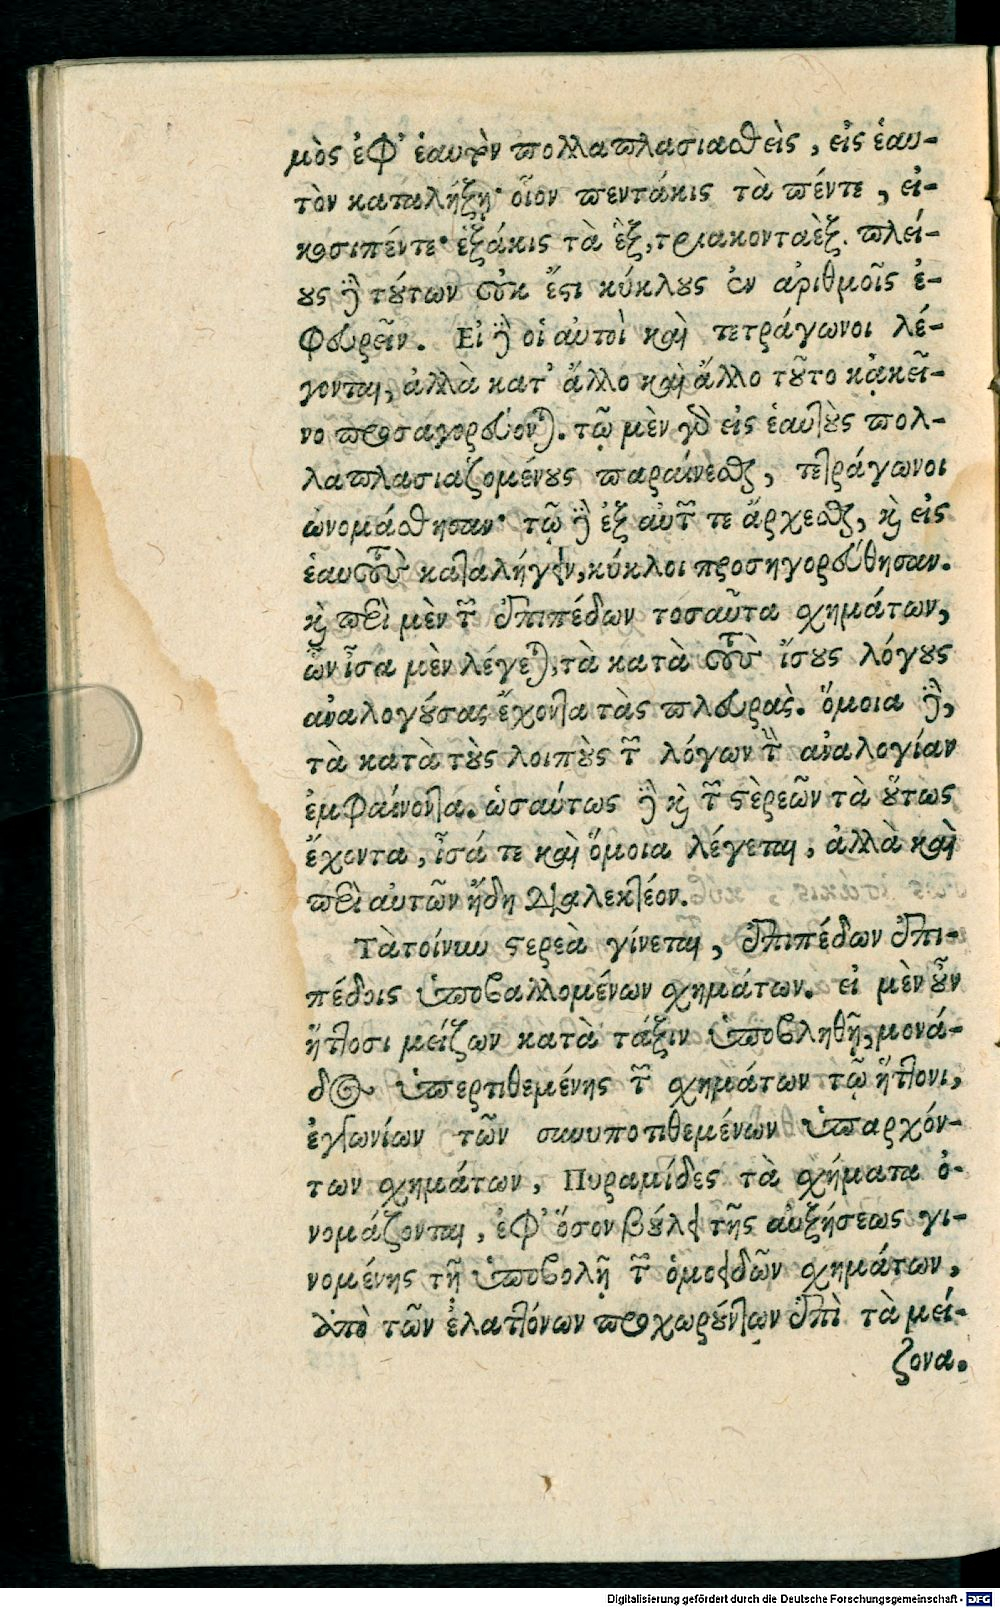 μὸς ἐφ' ἑαυτὸν πολλαπλασιασθεὶς, εἰς ἑαυ-
τὸν καταλήξῃ· οἷον πεντάκις τὰ πέντε, εἰ-
κοσιπέντε· ἑξάκις τὰ ἓξ, τριακονταὲξ. πλεί-
ους δὲ τούτων οὐκ ἔστι κύκλους ἐν ἀριθμοῖς ἐ-
φευρεῖν. Εἰ δὲ οἱ αὐτοὶ καὶ τετράγωνοι λέ-
γονται, ἀλλὰ κατ' ἄλλο καὶ ἄλλο τοῦτο κᾀκεῖ-
νο προσαγορεύονται. τῷ μὲν γὰρ εἰς ἑαυτοὺς πολ-
λαπλασιαζομένους παραίνεσθαι, τετράγωνοι
ὠνομάσθησαν· τῷ δὲ ἐξ αὑτῶν τε ἄρχεσθαι, καὶ εἰς
ἑαυτοὺς καταλήγειν, κύκλοι προσηγορεύθησαν.
καὶ περὶ μὲν τῶν ἐπιπέδων τοσαῦτα σχημάτων,
ὧν ἶσα μὲν λέγεται, τὰ κατὰ τοὺς ἴσους λόγους
ἀναλογούσας ἔχοντα τὰς πλευρὰς. ὅμοια δὲ,
τὰ κατὰ τοὺς λοιποὺς τῶν λόγων τὴν ἀναλογίαν
ἐμφαίνοντα. ὡσαύτως δὲ καὶ τῶν στερεῶν τὰ οὕτως
ἔχοντα, ἶσά τε καὶ ὅμοια λέγεται, ἀλλὰ καὶ
περὶ αὐτῶν ἤδη διαλεκτέον.
Τὰ τοίνυν στερεὰ γίνεται, ἐπιπέδων ἐπι-
πέδοις ὑποβαλλομένων σχημάτων. εἰ μὲν οὖν
ἥττοσι μείζων κατὰ τάξιν ὑποβληθῇ, μονά-
δος ὑπερτιθεμένης τῶν σχημάτων τῷ ἥττονι,
ἐγγωνίων τῶν συνυποτιθεμένων ὑπαρχόν-
των σχημάτων, Πυραμίδες τὰ σχήματα ὀ-
νομάζονται, ἐφ' ὅσον βούλει τῆς αὐξήσεως γι-
νομένης τῇ ὑποβολῇ τῶν ὁμοειδῶν σχημάτων,
ἀπὸ τῶν ἐλαττόνων προχωρούντων ἐπὶ τὰ μεί-
ζονα.
Digitalisierung gefördert durch die Deutsche Forschungsgemeinschaft - DFG